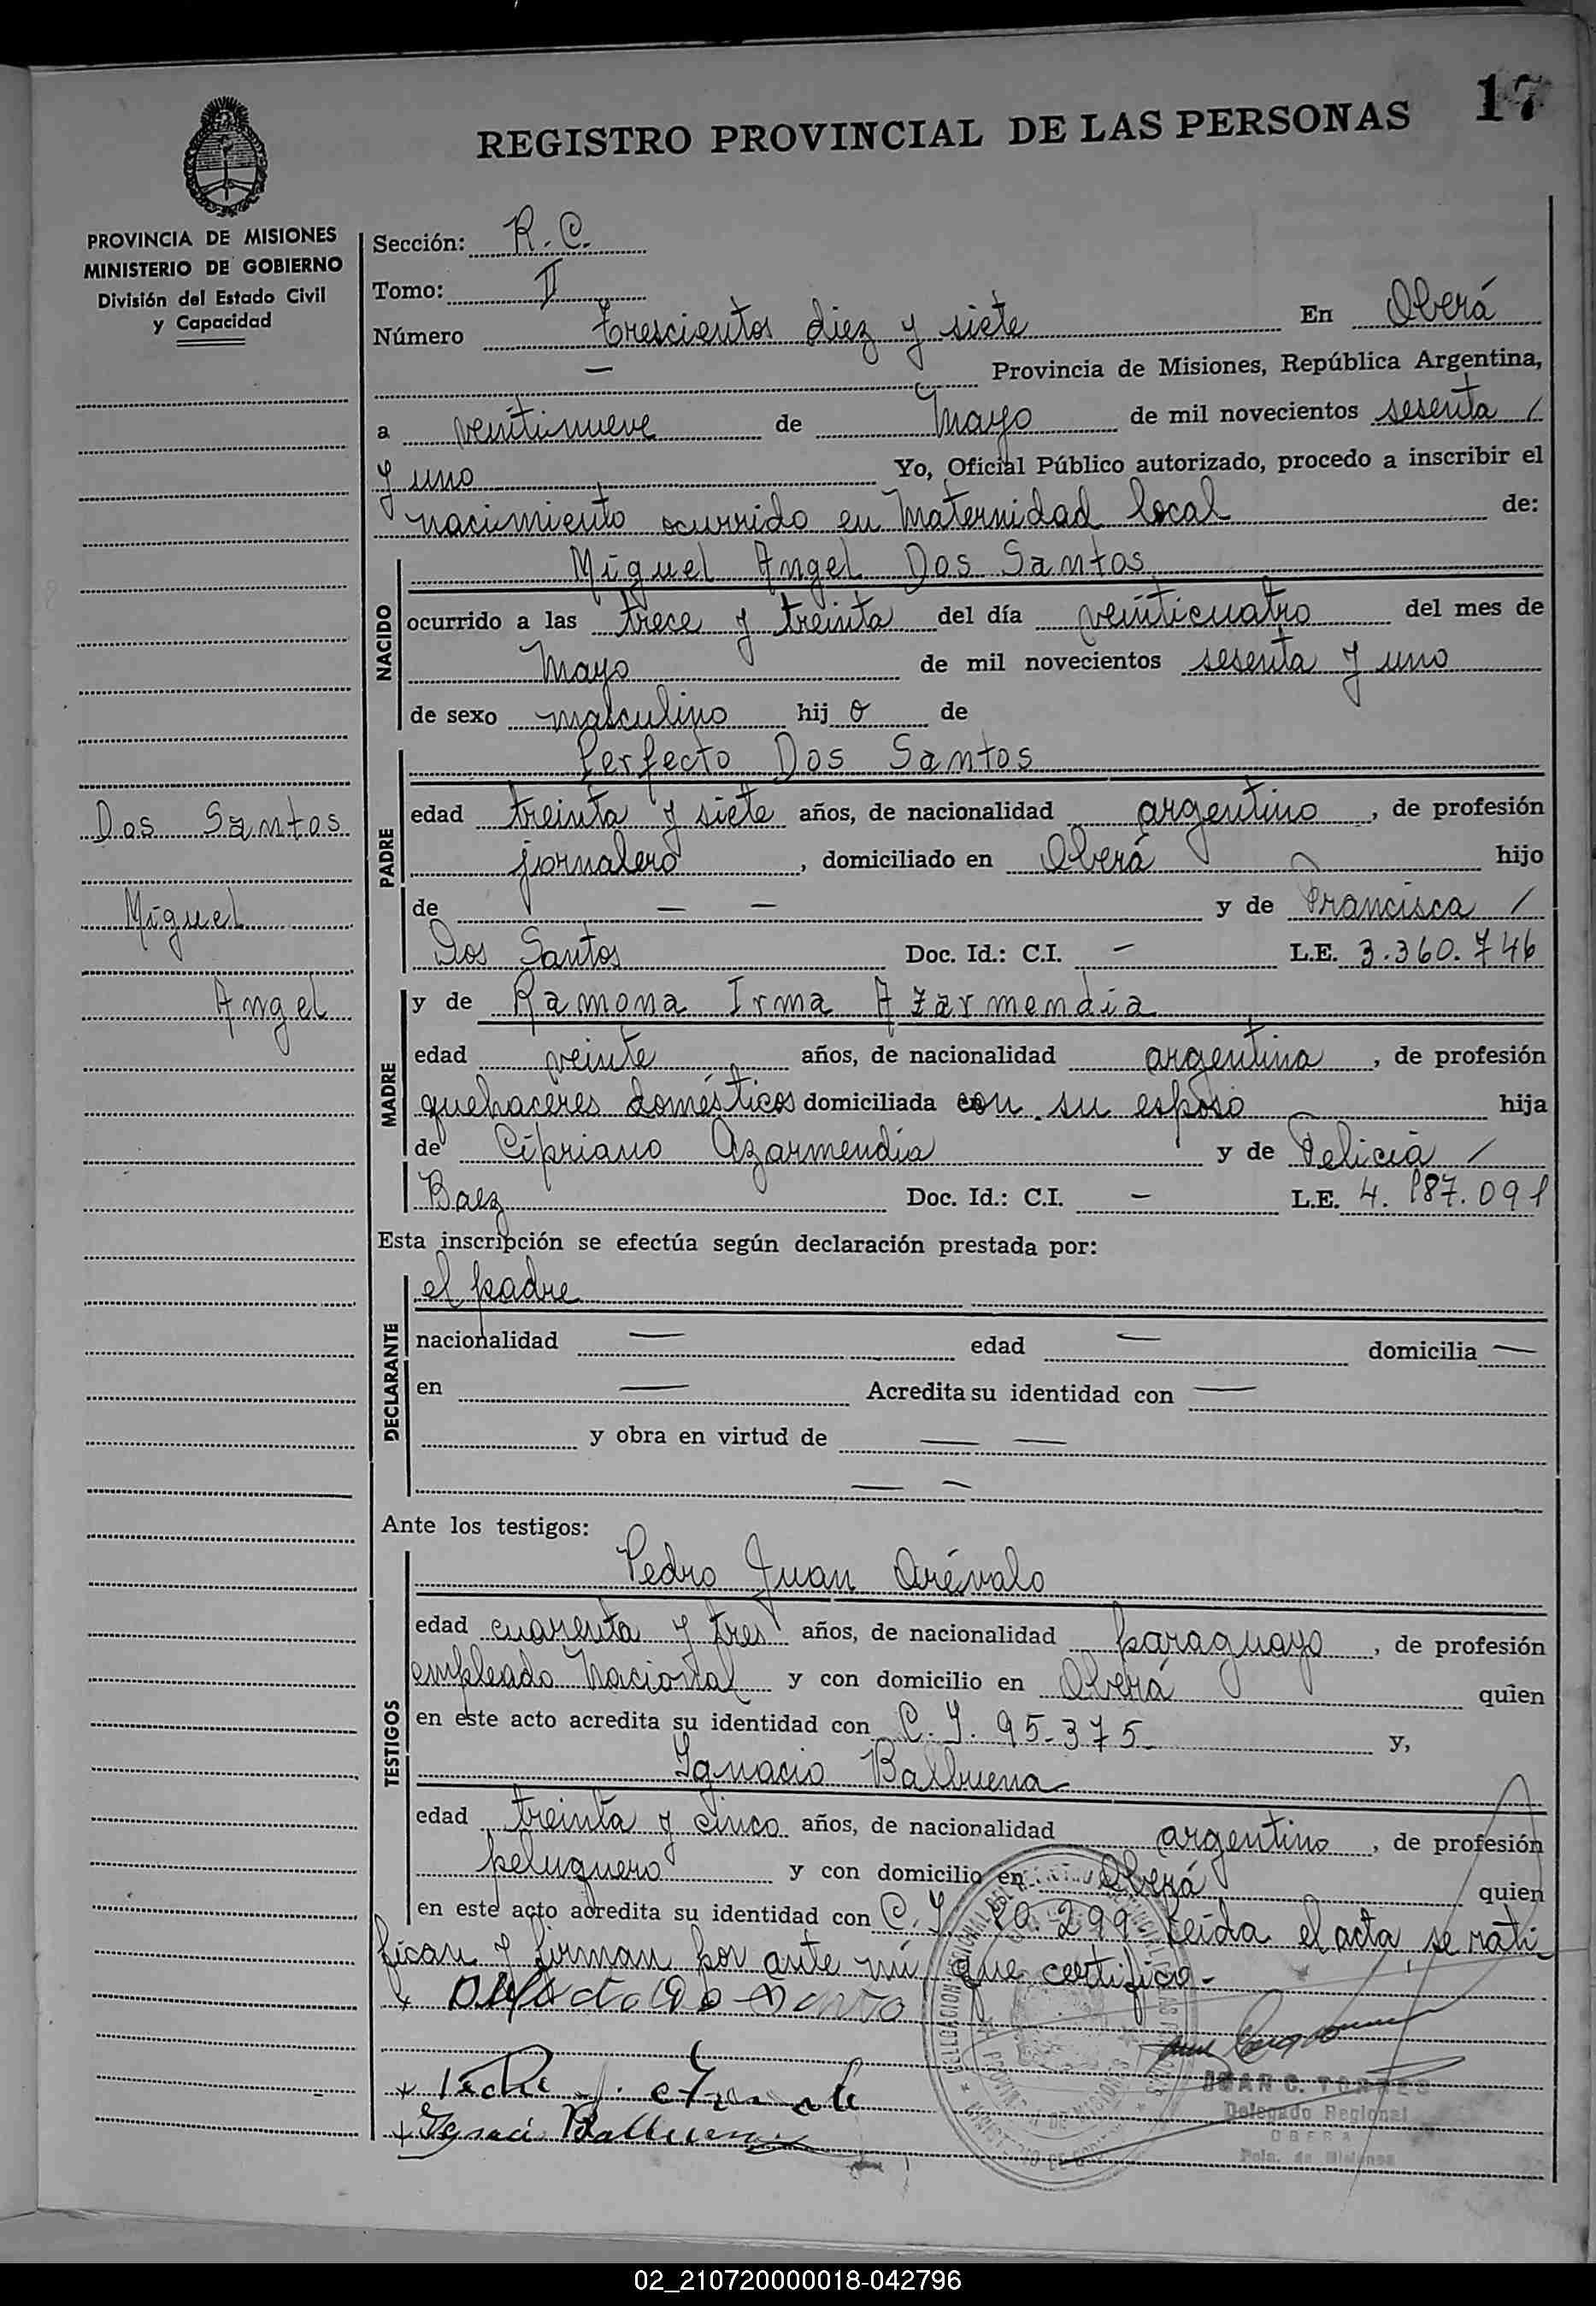 17
REGISTRO PROVINCIAL DE LAS PERSONAS
PROVINCIA DE MISIONES
MINISTERIO DE GOBIERNO
División del Estado Civil
y Capacidad
Dos Santos
Miguel
Angel
Sección: R. C.
Tomo: II
Número Trescientos diez y siete En Oberá
— Provincia de Misiones, República Argentina,
a veintinueve de Mayo de mil novecientos sesenta /
y uno Yo, Oficial Público autorizado, procedo a inscribir el
nacimiento ocurrido en Maternidad local de:
NACIDO
Miguel Angel Dos Santos
ocurrido a las trece y treinta del día veinticuatro del mes de
Mayo de mil novecientos sesenta y uno
de sexo masculino hij o de
PADRE
Perfecto Dos Santos
edad treinta y siete años, de nacionalidad argentino, de profesión
jornalero, domiciliado en Oberá hijo
de — — y de Francisca /
Dos Santos Doc. Id.: C.I. — L.E. 3.360.746
MADRE
y de Ramona Irma Azarmendia
edad veinte años, de nacionalidad argentina, de profesión
quehaceres domésticos domiciliada con su esposo hija
de Cipriano Azarmendia y de Felicia /
Baez Doc. Id.: C.I. — L.E. 4.187.091
Esta inscripción se efectúa según declaración prestada por:
DECLARANTE
el padre
nacionalidad — edad — domicilia —
en — Acredita su identidad con —
y obra en virtud de — —
— —
Ante los testigos:
TESTIGOS
Pedro Juan Arévalo
edad cuarenta y tres años, de nacionalidad paraguayo, de profesión
empleado Nacional y con domicilio en Oberá quien
en este acto acredita su identidad con C. I. 95.375- y,
Ignacio Balbuena
edad treinta y cinco años, de nacionalidad argentino, de profesión
peluquero y con domicilio en Oberá quien
en este acto acredita su identidad con C. I. 299- Leída el acta, se rati-
fican y firman por ante mí que certifico.-
Ignaci Balbuena
JUAN C. TORRES
Delegado Regional
OBERA
Pcia. de Misiones
02_210720000018-042796